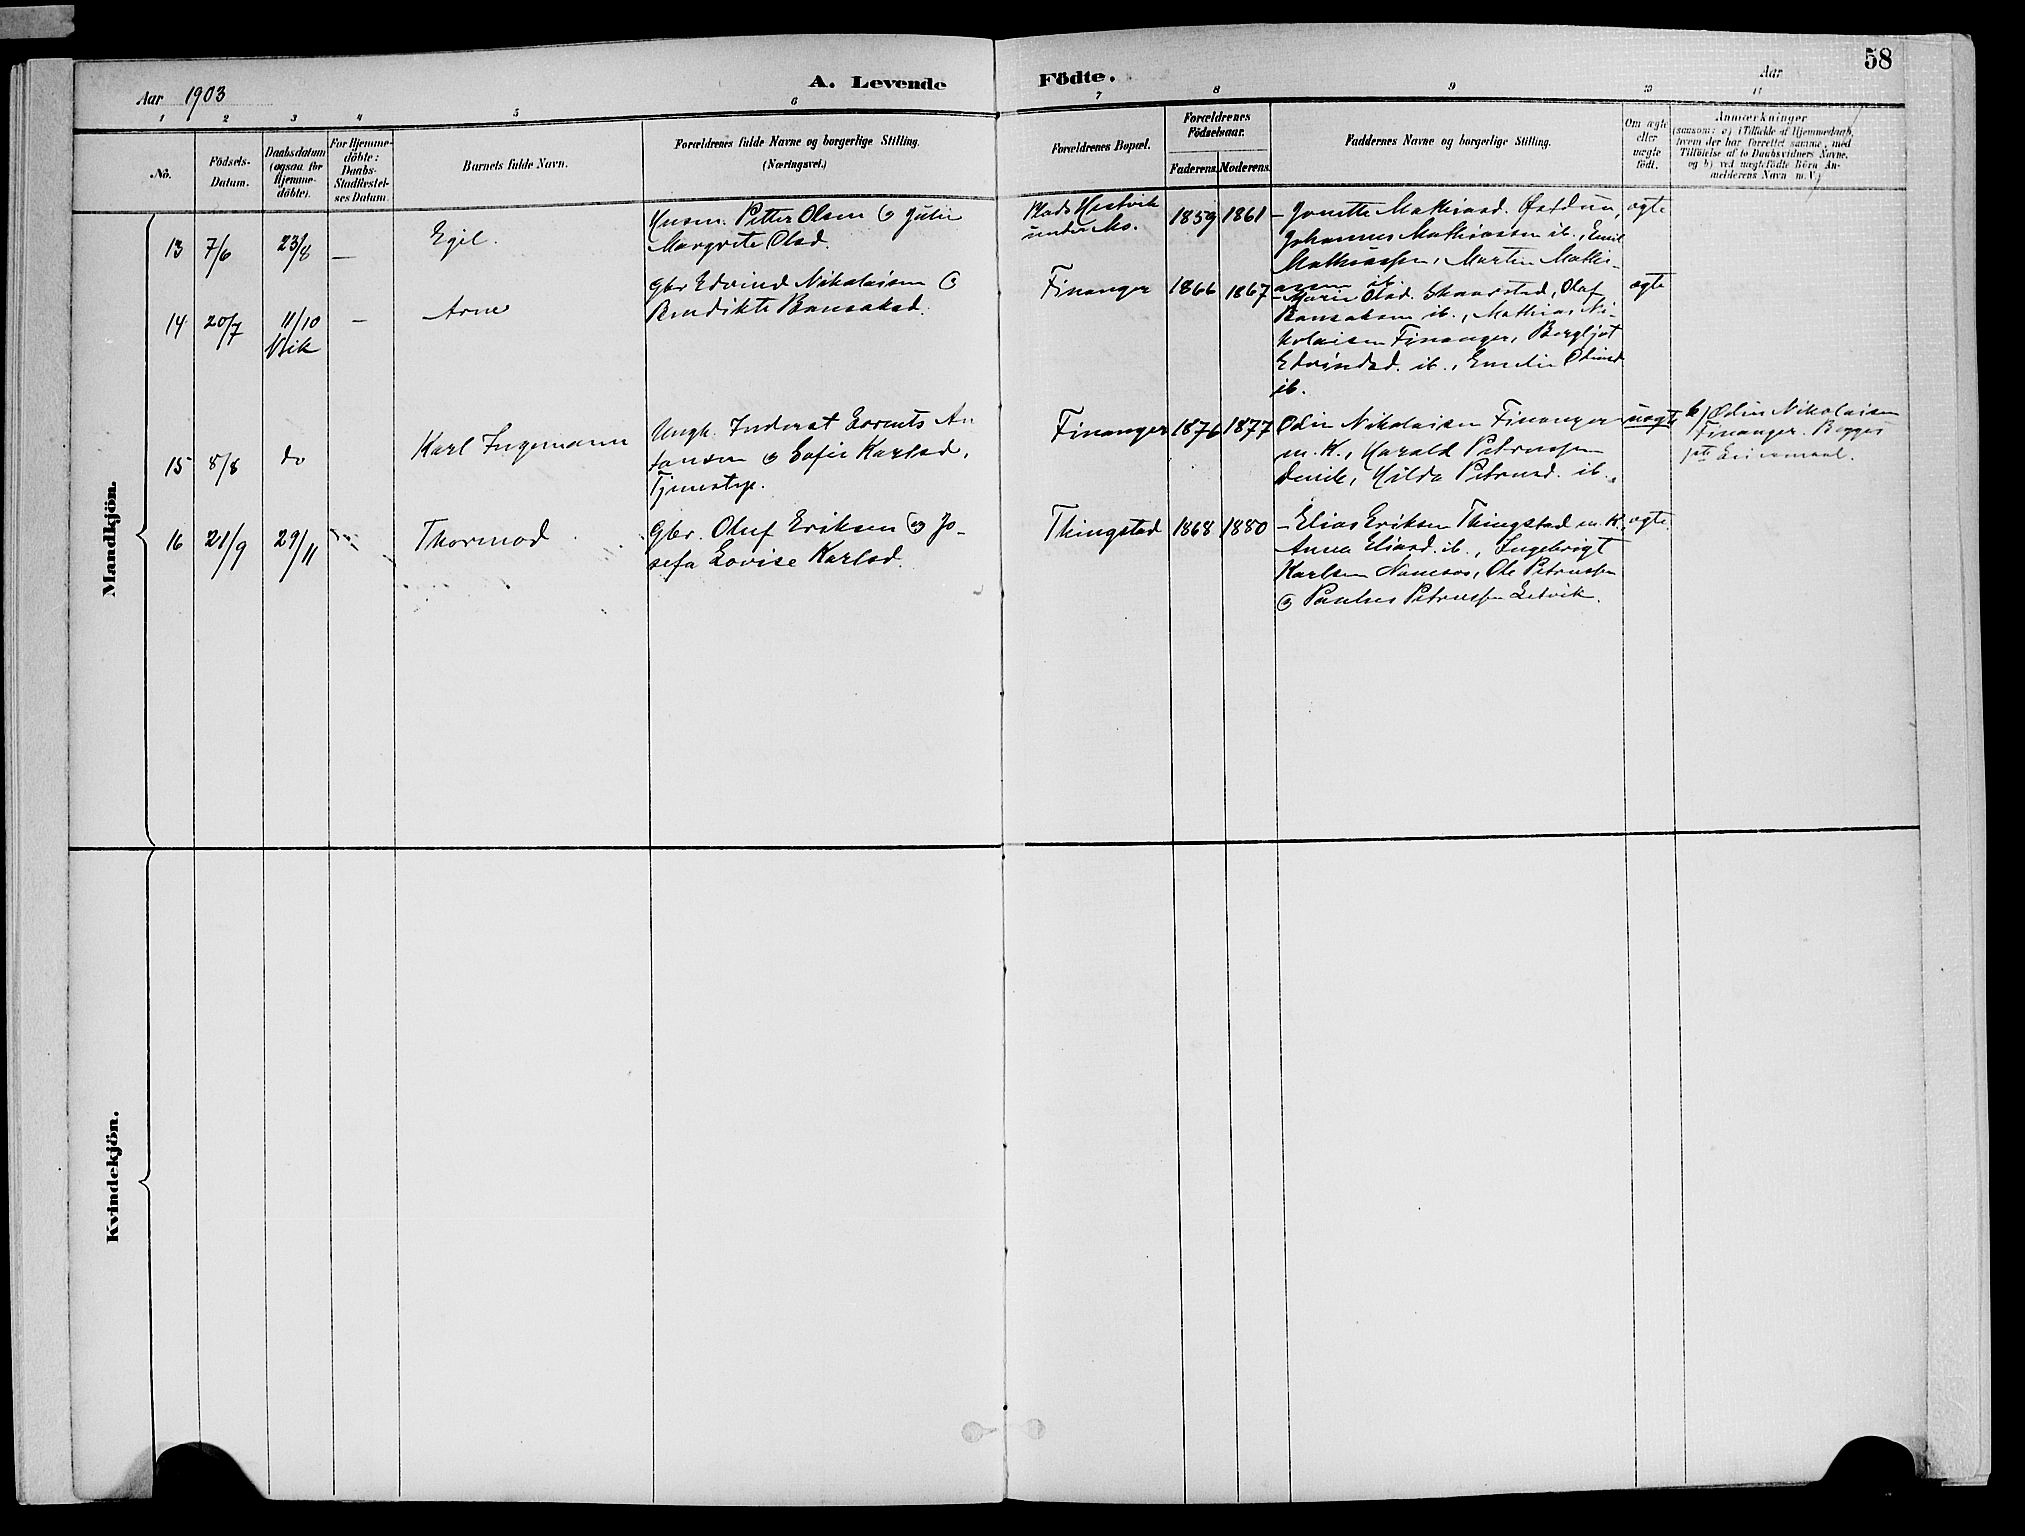 58
A. Levende Födte.
Aar 1903
Aar
1 2 3 4 5 6 7 8 9 10 11
No.
Födsels-Datum.
Daabsdatum (ogsaa for Hjemmedöbte).
For Hjemmedöbte: Daabs-Stadfæstelses Datum.
Barnets fulde Navn.
Forældrenes fulde Navne og borgerlige Stilling.
(Næringsvei.)
Forældrenes Bopæl.
Forældrenes Födselsaar.
Faderens. Moderens.
Faddernes Navne og borgerlige Stilling.
Om ægte eller uægte födt.
Anmærkninger
(saasom: a) i Tilfælde af Hjemmedaab, hvem der har forrettet samme, med Tilföielse af to Daabsvidners Navne, og b) ved uægtefödte Börn Anmelderens Navn m. V.)
Mandkjön.
13 7/6 23/8 — Egil.
Husm. Petter Olsen og Julie
Margrete Olsd.
Plads Hestvik
under Mo.
1859 1861
– Jonette Mathiasd. Østduun,
Johannes Mathiassen ib., Emil
Mathiassen, Martin Mathi-
assen ib.
ægte
14 20/7 11/10 Vik — Arne
Gbr Edvind Nikolaisen og
Bendikte Bansaksd.
Finanger 1866 1867
– Marie Olsd. Skaarstad, Olaf
Bansaksen ib., Mathias Ni-
kolaisen Finanger, Bergljot
Edvindsd. ib., Emelie
ib.
ægte
15 8/8 do Karl Ingemann
Ungk. Inderat Lorents An
tonsen og Sofie Karlsd,
Finanger 1876 1877
Odin Nikolaisen Finanger
m. K., Harald Petrussen
Hilda Petrusd. ib.
uægte
b) Odin Nikolaisen
Finanger. Begges
1ste Leiermaal.
16 21/9 29/11 Thormod
Gbr. Oluf Eriksen og Jo-
sefa Lovise Karlsd.
Thingstad 1868 1880
– Elias Eriksen Thingstad m. K.
Anna Eliasd. ib., Ingebrigt
Karlsen Namsos, Ole Petrussen
og Paulus Petrussen
ægte.
Kvindekjön.